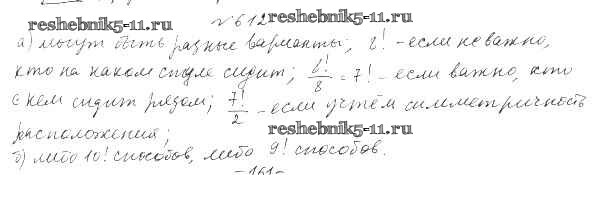 reshebnik5-11.ru
№612
reshebnik5-11.ru
а) могут быть разные варианты; 8! - если не важно,
кто на каком стуле сидит; 8!/8 = 7! - если важно, кто
с кем сидит рядом; 7!/2 - если учтём симметричность
расположения;
reshebnik5-11.ru
б) либо 10! способов, либо 9! способов.
-161-